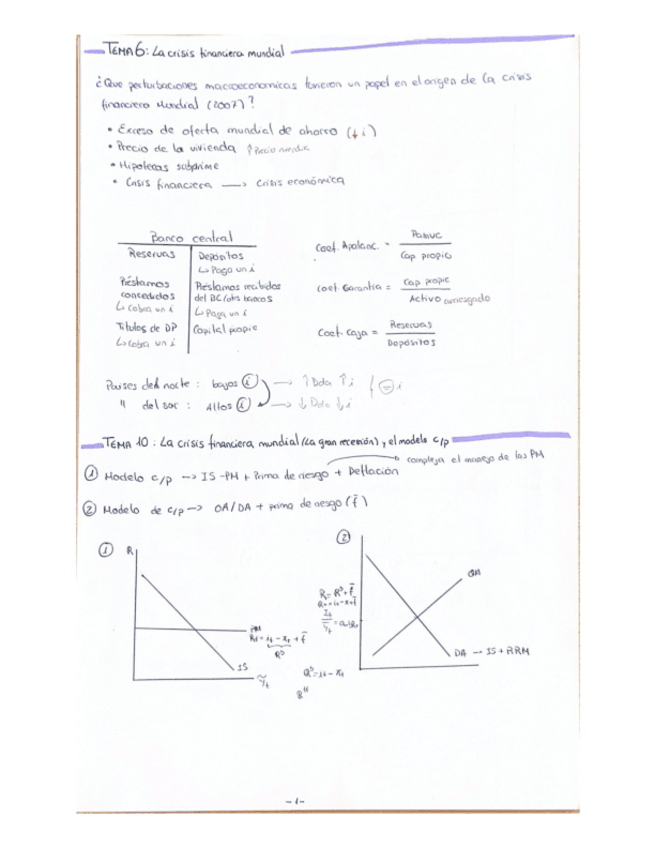 TEMA 6: La crisis financiera mundial
¿Que perturbaciones macroeconomicas tuvieron un papel en el origen de la crisis
financiera Mundial (2007)?
• Exceso de oferta mundial de ahorro (↓ i)
• Precio de la vivienda ↑ Precio
• Hipotecas subprime
• Crisis financiera → Crisis económica
Banco central
Reservas
Préstamos
concedidos
↳ Cobra un i
Titulos de DP
↳ Cobra un i
Depósitos
↳ Paga un i
Préstamos recibidos
del BC/otros bancos
↳ Paga un i
Capital propio
Coef. Apalanc. = Pasivo / Cap propio
Coef. Garantia = Cap propio / Activo arriesgado
Coef. Caja = Reservas / Depósitos
Paises del norte : bajos i → ↑ Dda ↑ i
" del sur : Altos i → ↓ Dda ↓ i
= i
TEMA 10 : La crisis financiera mundial (La gran recesión) y el modelo c/p
compleja el manejo de las PM
① Modelo c/p → IS-PM + Prima de riesgo + Deflación
② Modelo de c/p → OA/DA + prima de riesgo (f̄)
①
R
PM
IS
②
OA
DA → IS + RRM
- 1 -